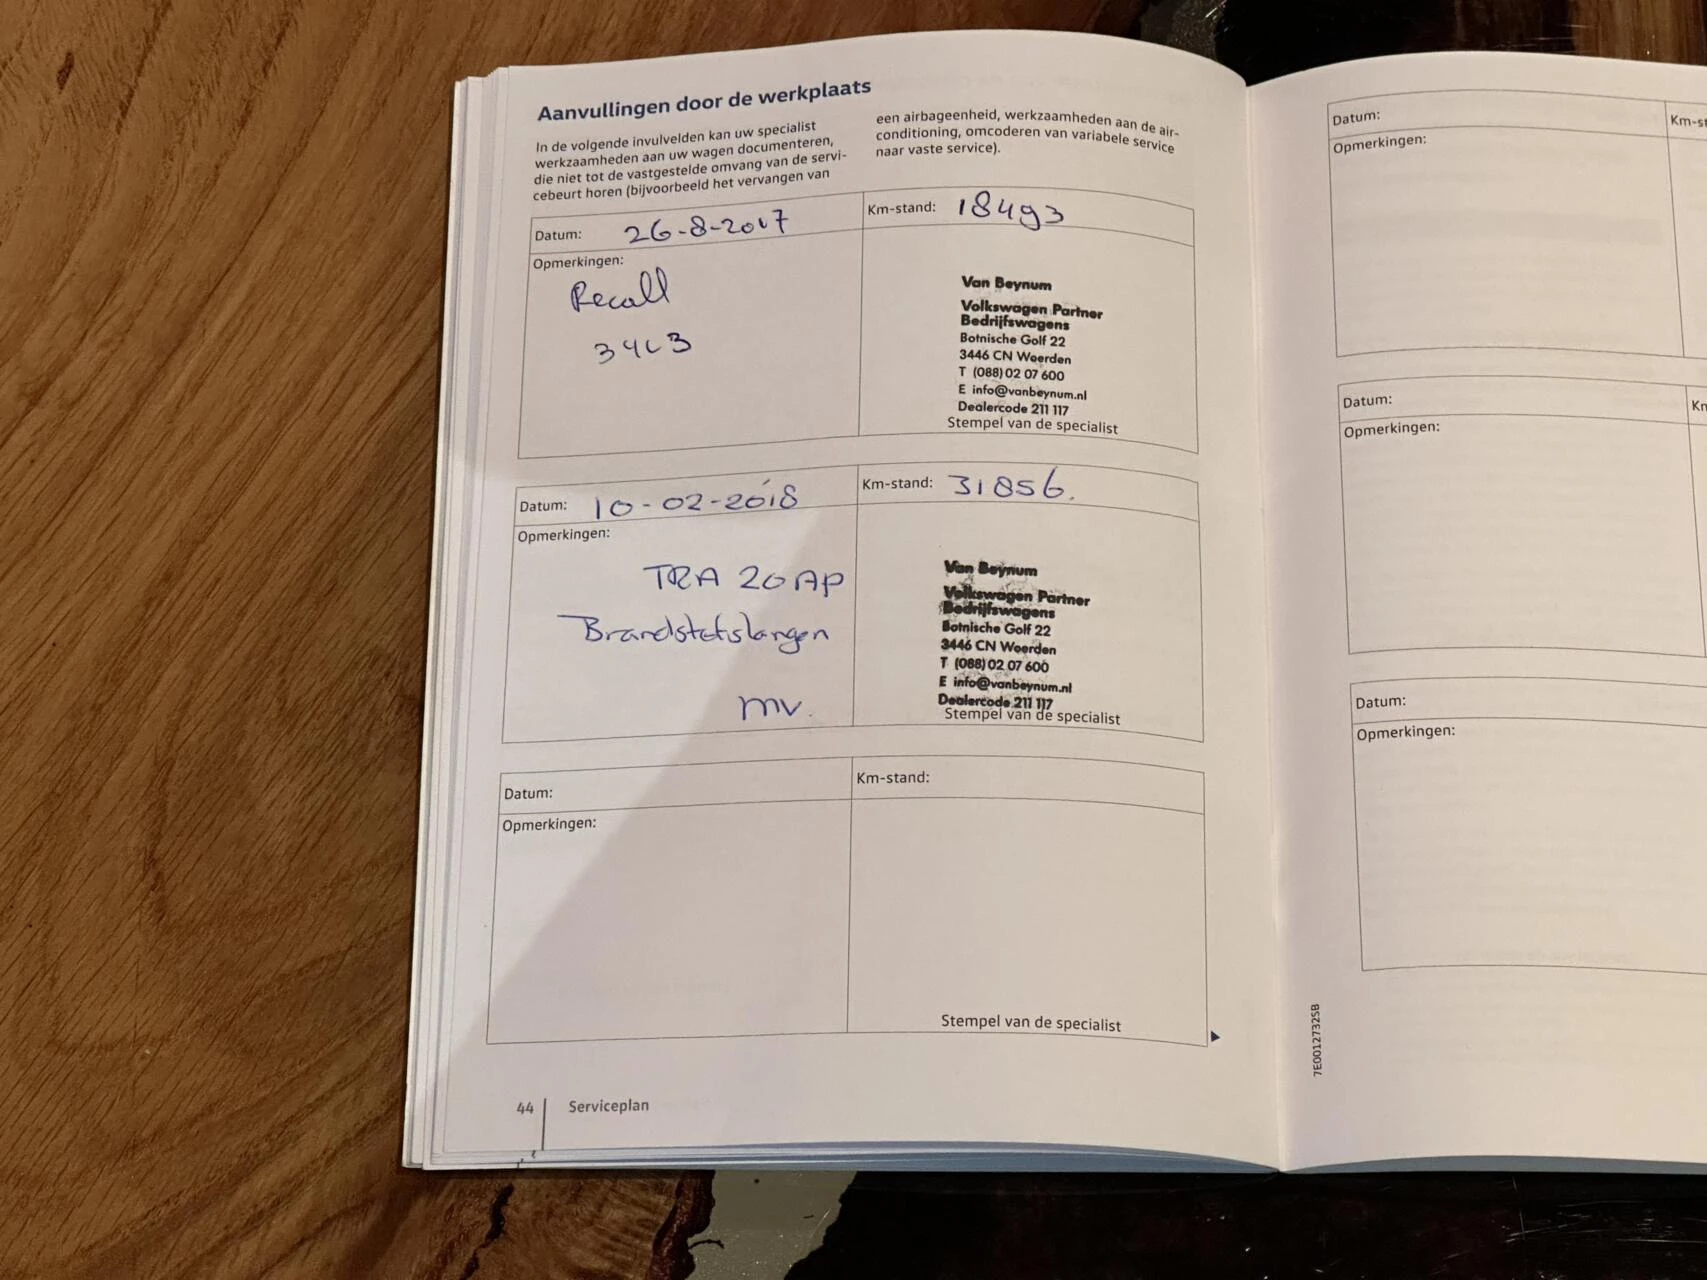 Aanvullingen door de werkplaats
In de volgende invulvelden kan uw specialist
werkzaamheden aan uw wagen documenteren,
die niet tot de vastgestelde omvang van de servi-
cebeurt horen (bijvoorbeeld het vervangen van
een airbageenheid, werkzaamheden aan de air-
conditioning, omcoderen van variabele service
naar vaste service).
Datum: 26-8-2017
Km-stand: 18493
Opmerkingen:
Recall
Van Beynum
Volkswagen Partner
Bedrijfswagens
Botnische Golf 22
3446 CN Woerden
T (088) 02 07 600
E info@vanbeynum.nl
Dealercode 211 117
Stempel van de specialist
Datum: 10-02-2018
Km-stand: 31856.
Opmerkingen:
TRA 20AP
Brandstofslangen
mv.
Van Beynum
Volkswagen Partner
Bedrijfswagens
Botnische Golf 22
3446 CN Woerden
T (088) 02 07 600
E info@vanbeynum.nl
Dealercode 211 117
Stempel van de specialist
Datum:
Km-stand:
Opmerkingen:
Stempel van de specialist
44 Serviceplan
Datum:
Km-st
Opmerkingen:
Datum:
Km
Opmerkingen:
Datum:
Opmerkingen:
7E0012732SB